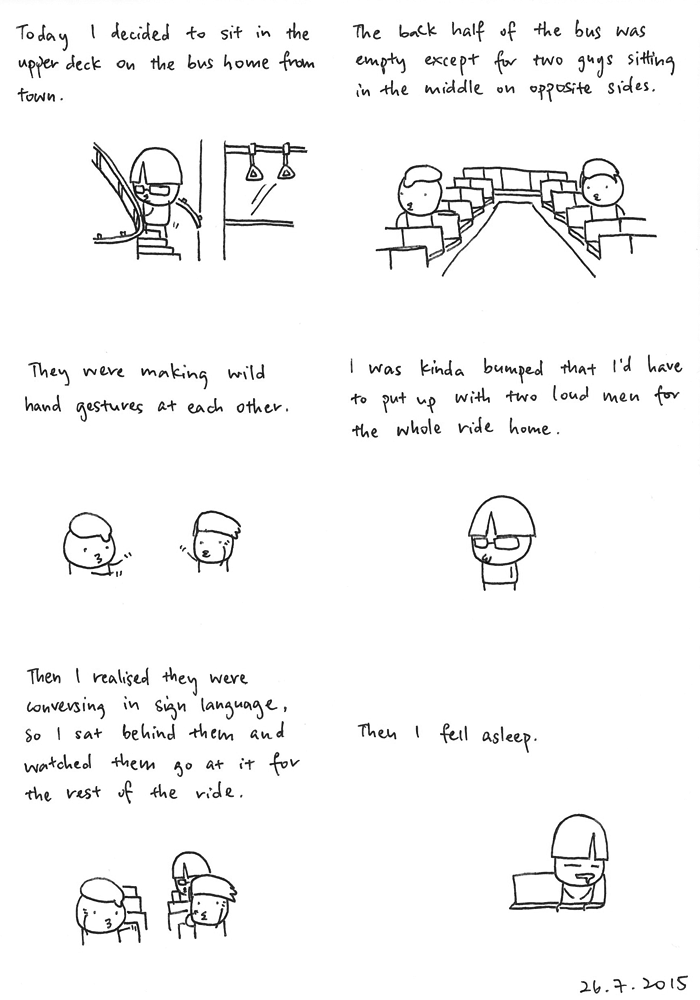 Today I decided to sit in the
upper deck on the bus home from
town.
The back half of the bus was
empty except for two guys sitting
in the middle on opposite sides.
They were making wild
hand gestures at each other.
I was kinda bumped that I'd have
to put up with two loud men for
the whole ride home.
Then I realised they were
conversing in sign language,
so I sat behind them and
watched them go at it for
the rest of the ride.
Then I fell asleep.
26.7.2015